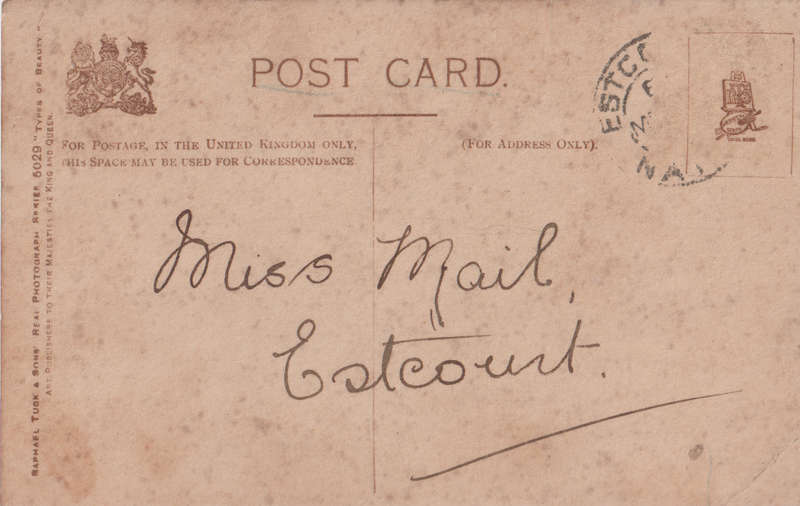 POST CARD.
FOR POSTAGE, IN THE UNITED KINGDOM ONLY,
THIS SPACE MAY BE USED FOR CORRESPONDENCE
(FOR ADDRESS ONLY).
Miss Mail,
Estcourt.
RAPHAEL TUCK & SONS' REAL PHOTOGRAPH SERIES 5029 "TYPES OF BEAUTY."
ART PUBLISHERS TO THEIR MAJESTIES THE KING AND QUEEN.
ESTCO
NA